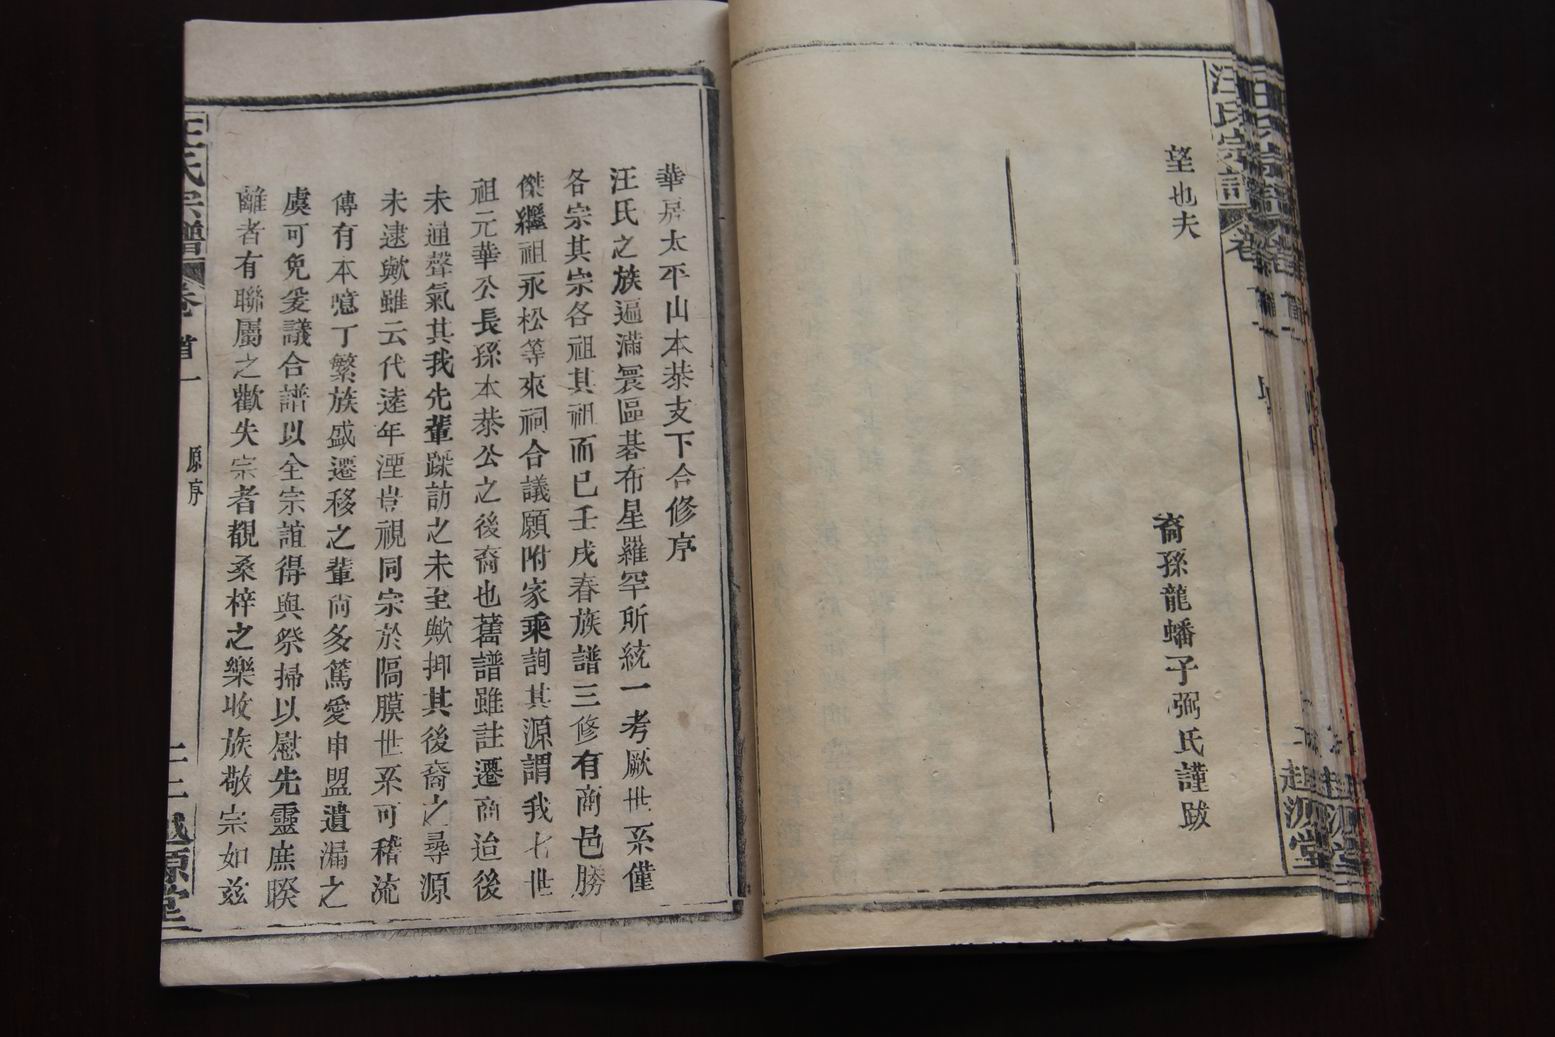 汪氏宗譜
卷首一
越沠堂
望也夫
裔孫龍蟠子弼氏謹跋
華居太平山本恭支下合修序
汪氏之族遍滿寰區碁布星羅罕所統一考厥世系僅
各宗其宗各祖其祖而已壬戌春族譜三修有商邑勝
傑繼祖永松等來祠合議願附家乘詢其源謂我七世
祖元華公長孫本恭公之後裔也舊譜雖註遷商迨後
未通聲氣其我先輩蹂訪之未至歟抑其後裔之尋源
未逮歟雖云代遠年湮豈視同宗於隔膜世系可稽流
傳有本憶丁繁族盛遷移之輩尚多篤愛申盟遺漏之
虞可免爰議合譜以全宗誼得與祭掃以慰先靈庶睽
離者有聯屬之歡失宗者覩桑梓之樂收族敬宗如茲
汪氏宗譜
卷首一
原序
十二
越源堂